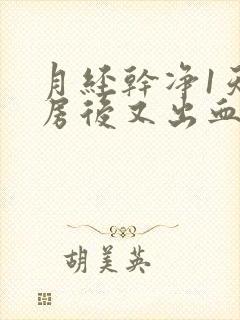 月经幹净1天
房後又出血
胡美英